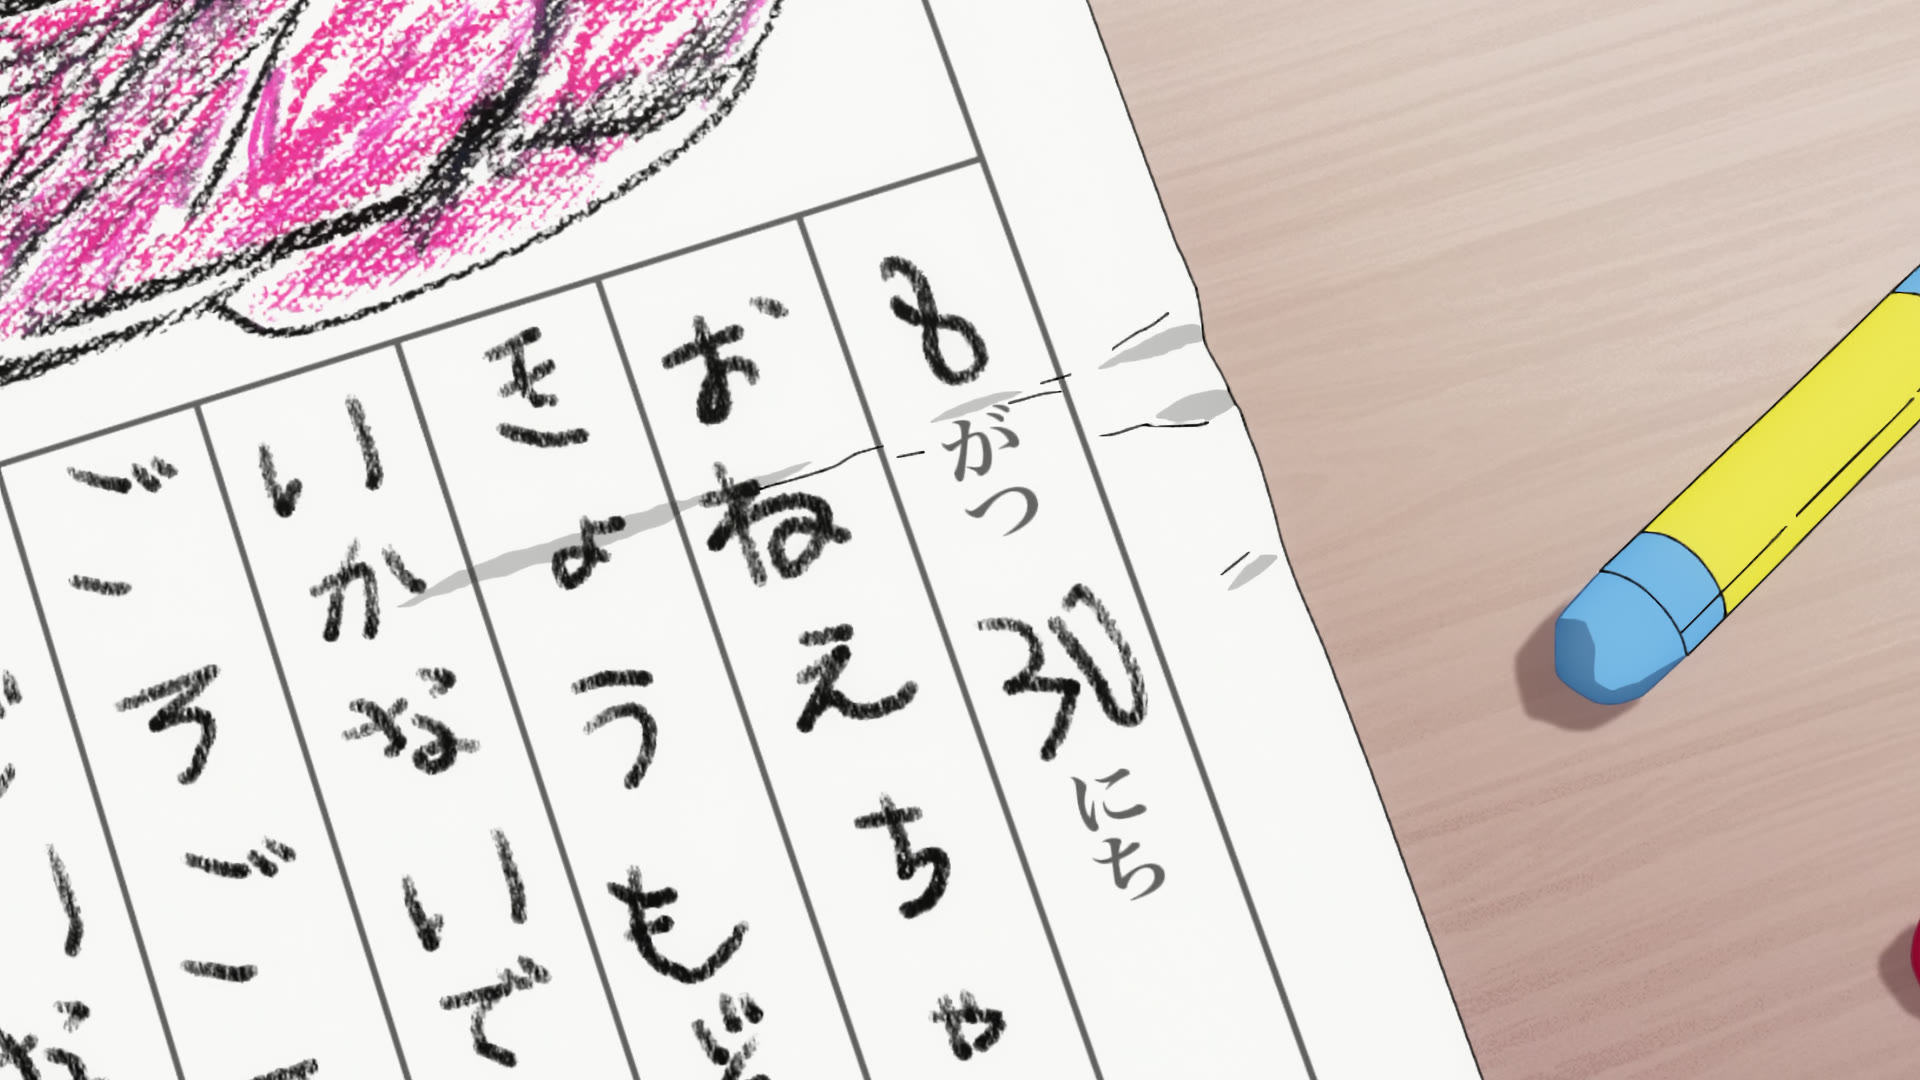 8がつ30にち
おねえちゃ
きょうもど
いかないで
ごろご